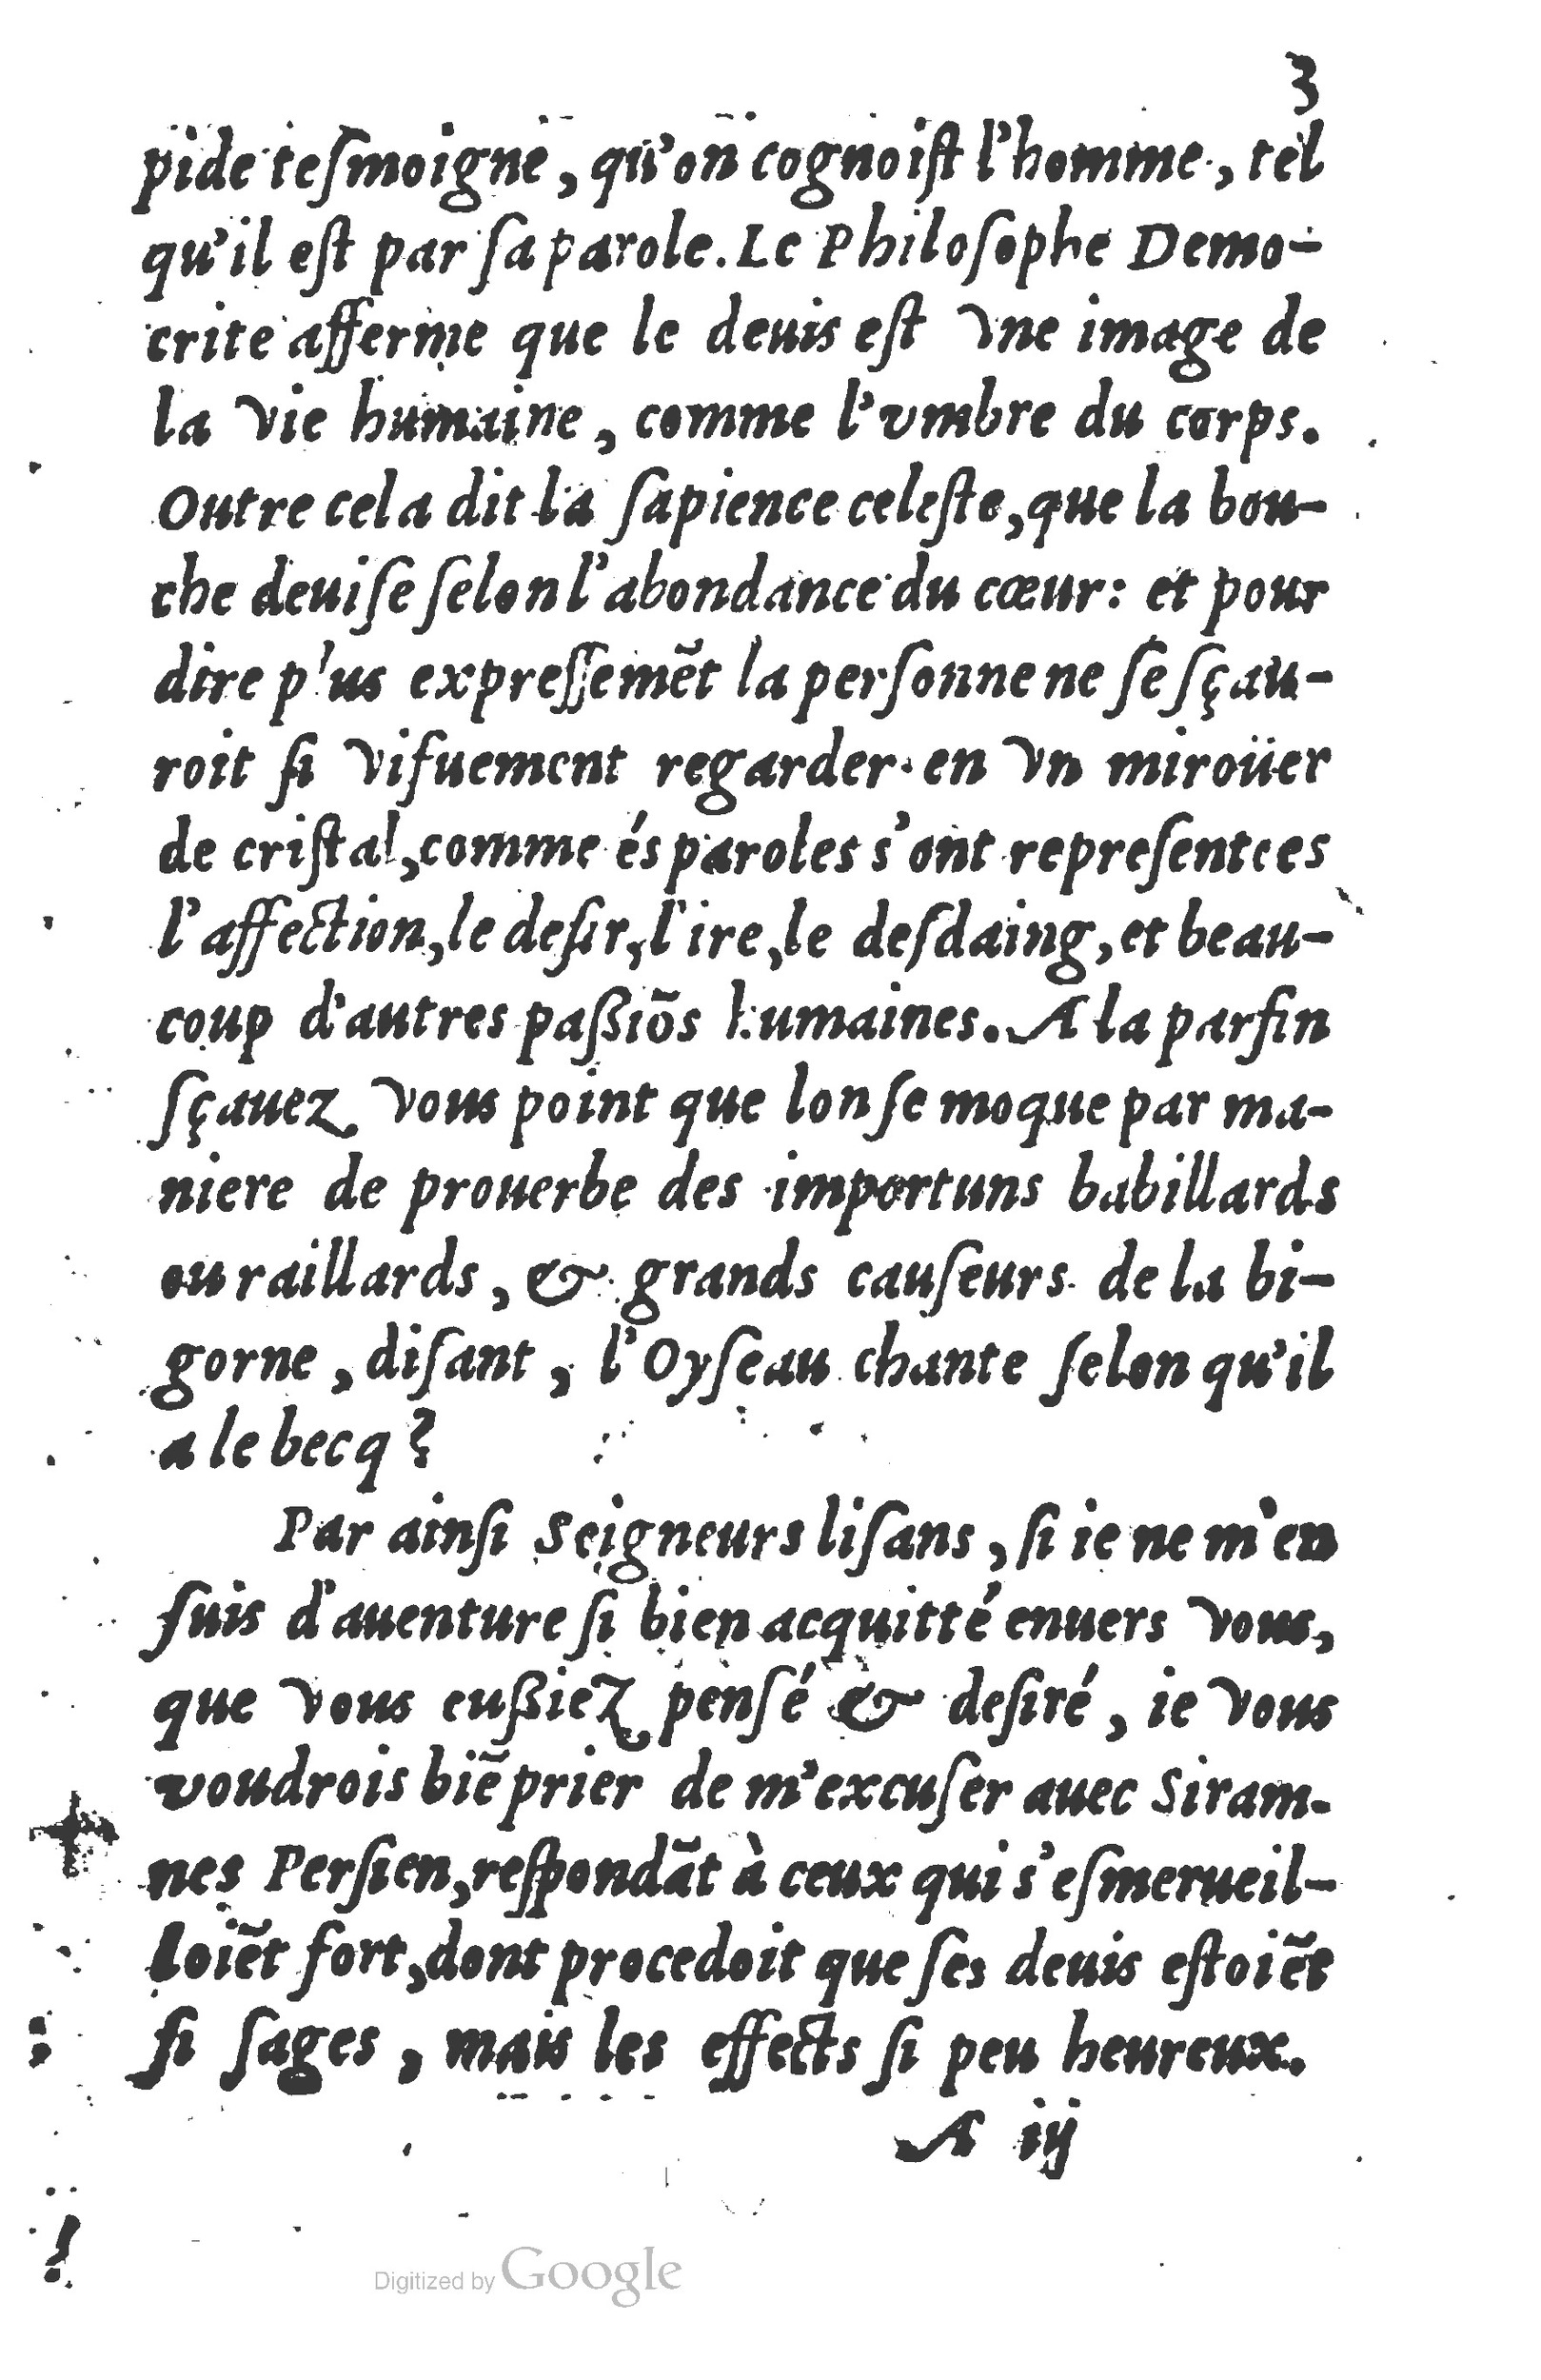 3
pide tesmoigne, qu'on cognoist l'homme, tel
qu'il est par sa parole. Le Philosophe Demo-
crite afferme que le deuis est vne image de
la vie humaine, comme l'vmbre du corps.
Outre cela dit la sapience celeste, que la bou-
che deuise selon l'abondance du cœur: et pour
dire plus expressemẽt la personne ne se sçau-
roit si vifuement regarder en vn miroüer
de cristal, comme és paroles s'ont representees
l'affection, le desir, l'ire, le desdaing, et beau-
coup d'autres paßiõs humaines. A la parfin
sçauez vous point que lon se moque par ma-
niere de prouerbe des importuns babillards
ou raillards, & grands causeurs de la bi-
gorne, disant, l'Oyseau chante selon qu'il
a le becq?
Par ainsi Seigneurs lisans, si ie ne m'en
suis d'auenture si bien acquitté enuers vous,
que vous eußiez pensé & desiré, ie vous
voudrois biẽ prier de m'excuser auec Siram-
nes Persien, respondãt à ceux qui s'esmerueil-
loiẽt fort, dont procedoit que ses deuis estoiẽt
si sages, mais les effects si peu heureux.
A iij
Digitized by Google